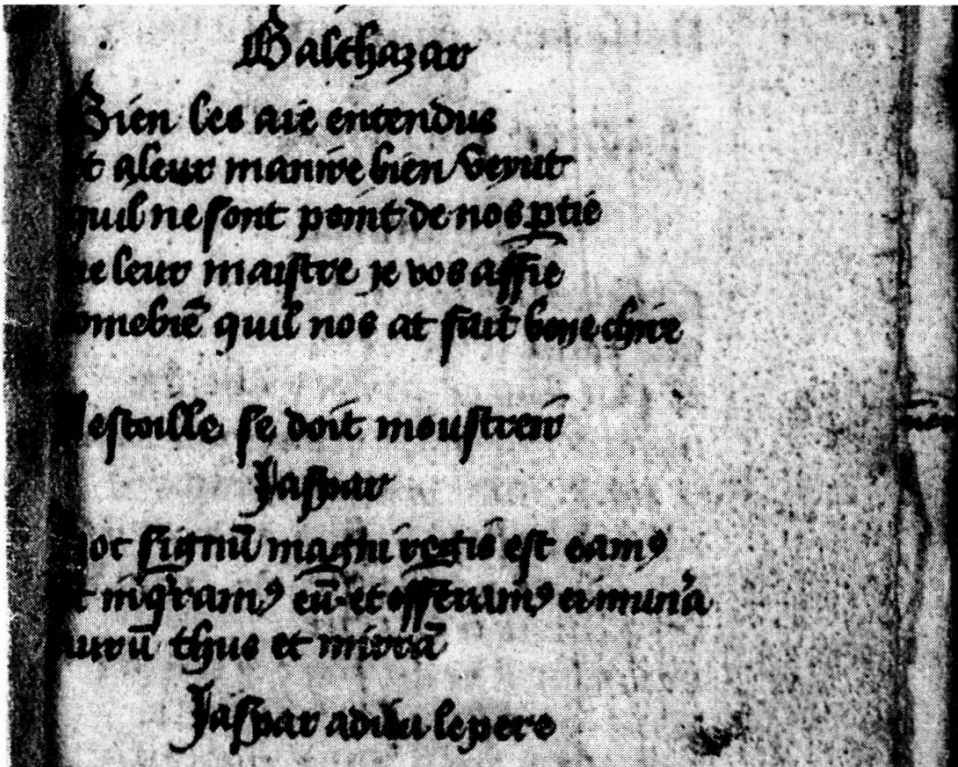 Balthazar
Bien les aie entendus
t a leur maniere bien veyut
quil ne sont point de nos ptie
ne leur maistre je vos affie
omebiē quil nos at fait bone chire
lestoille se doit moustreir
Jaspar
hoc signū magni regis est eamꝰ
t inqramꝰ eū et offeramꝰ ei muna
aurū thus et mirrā
Jaspar a dieu le pere